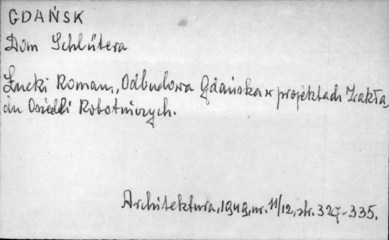 GDAŃSK
Dom Schlütera
Łucki Roman, Odbudowa Gdańska w projektach Zakła
du Osiedli Robotniczych.
Architektura, 1949, nr. 11/12, str. 327-335.